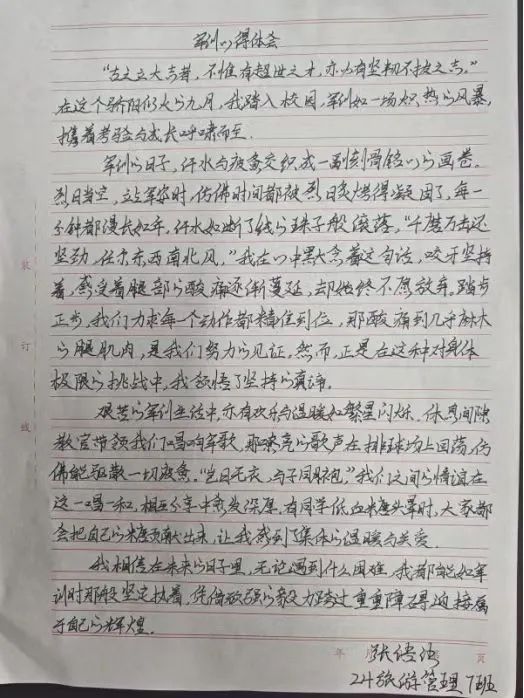 军训心得体会
“古之立大志者，不惟有超世之才，亦必有坚韧不拔之志。”
在这个骄阳似火的九月，我踏入校园，军训如一场炽热的风暴，
携着考验与成长呼啸而至。
军训的日子，汗水与疲惫交织成一副刻骨铭心的画卷。
烈日当空，立军姿时，仿佛时间都被烈日炙烤得凝固了，每一
分钟都漫长如年，汗水如断了线的珠子般滚落，“千磨万击还
坚劲，任尔东西南北风，”我在心中默念着这句话，咬牙坚持
着，感受着腿部的酸痛逐渐蔓延，却始终不愿放弃。踏步
正步，我们力求每一个动作都精准到位，那酸痛到几乎麻木
的腿肌肉，是我们努力的见证，然而，正是在这种对身体
极限的挑战中，我领悟了坚持的真谛。
艰苦的军训生活中，亦有欢乐与温暖如繁星闪烁。休息间隙
教官带领我们唱响军歌，那嘹亮的歌声在排球场上回荡，仿
佛能驱散一切疲惫。“岂曰无衣，与子同袍，”我们之间的情谊在
这一唱一和，相互分享中愈发深厚，有同学低血糖头晕时，大家都
会把自己的糖贡献出来，让我感到了集体的温暖与关爱。
我相信在未来的日子里，无论遇到什么困难，我都能如军
训时那般坚定执着，凭借顽强的毅力跨过重重障碍迎接属
于自己的辉煌。
年 页
24旅游管理7班
装
订
线